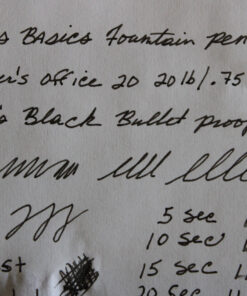 s Basics Fountain pen
r's office 20 20lb/.75
s Black Bullet proof
5 sec
10 sec
st
15 sec
20 sec